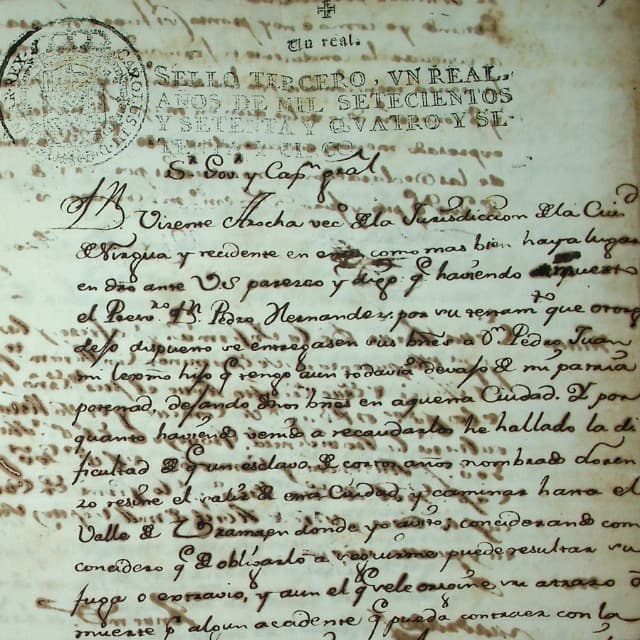 Un real.
SELLO TERCERO, VN REAL,
AÑOS DE MIL SETECIENTOS
Y SETENTA Y QVATRO Y SE-
Sr Govr y Capn gral
Dn Visente Arocha veco de la Jurisdiccion de la Ciud
de Nirgua y recidente en esta como mas bien haya lugar
en dro ante VS paresco y digo q haviendo
el Presvro Dn Pedro Hernandes, por su testamto que otorgó
dispuesto se entregasen sus bnes a Dn Pedro Juan
mi lexmo hijo q tengo aun todavia devaxo de mi patria
potestad, dejando dhos bnes en aquella Ciudad. Y por
quanto haviendo venido a recaudarlos he hallado la di
ficultad de q un esclavo de cortos años nombrado Loren
zo resiste el salir de esta Ciudad, y caminar hasta el
Valle de donde yo asisto, conciderando como
concidero q de obligarlo a seguirme puede resultar su
fuga o extravio, y aun el q se le origine su atraso o
muerte p algun acsidente q pueda contraer con la